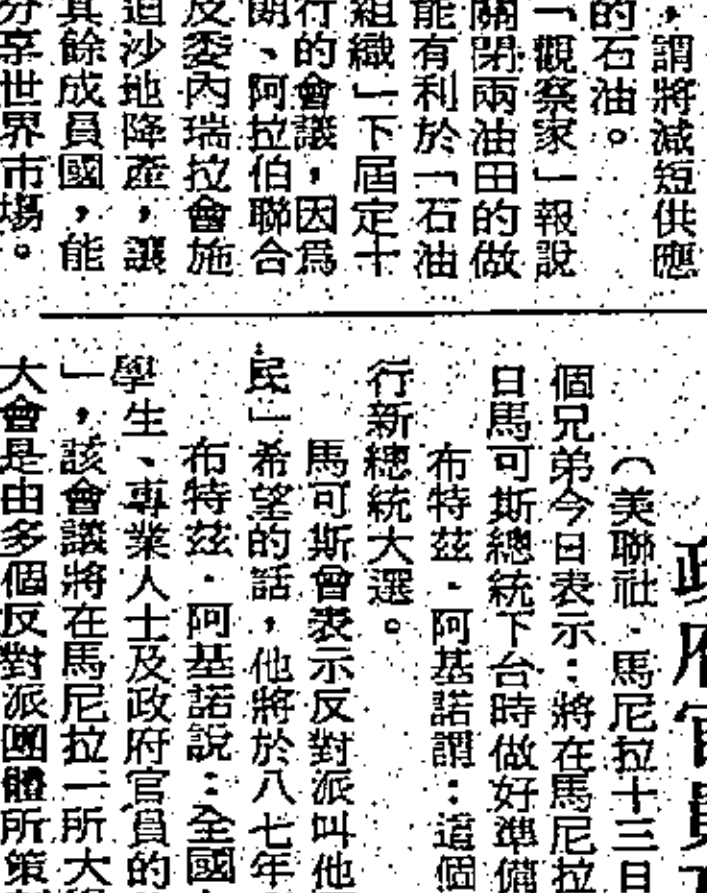 ，謂將減短供應
的石油。
「觀察家」報說
關閉兩油田的做
能有利於「石油
組織」下屆定十
行的會議，因爲
朗、阿拉伯聯合
及委內瑞拉會施
迫沙地降產，讓
其餘成員國，能
分享世界市場。
政府官員
（美聯社．馬尼拉十三日
個兄弟今日表示：將在馬尼拉
日馬可斯總統下台時做好準備
布特茲．阿基諾謂：這個
行新總統大選。
馬可斯曾表示反對派叫他
民」希望的話，他將於八七年
布特茲．阿基諾說：全國
學生、專業人士及政府官員的
」，該會議將在馬尼拉一所大
大會是由多個反對派團體所策